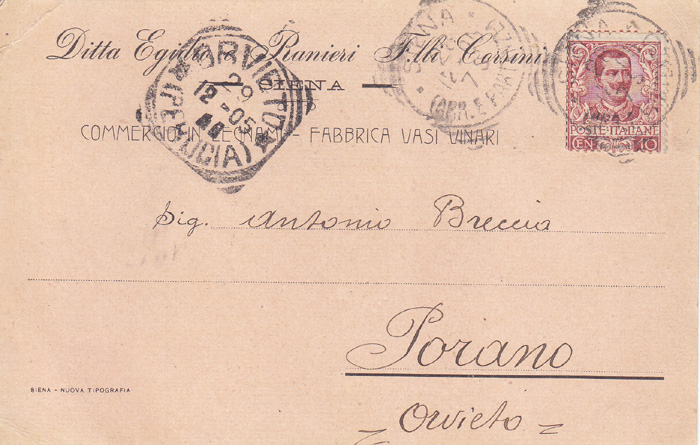 Ditta Egidio e Ranieri F.lli Corsini
SIENA
COMMERCIO IN LEGNAMI - FABBRICA VASI VINARI
ORVIETO
29
12 - 05
(PERUGIA)
SIENA
(ARR. E PART.)
POSTE ITALIANE
CEN. 10
Sig. Antonio Breccia
Porano
Orvieto
SIENA - NUOVA TIPOGRAFIA